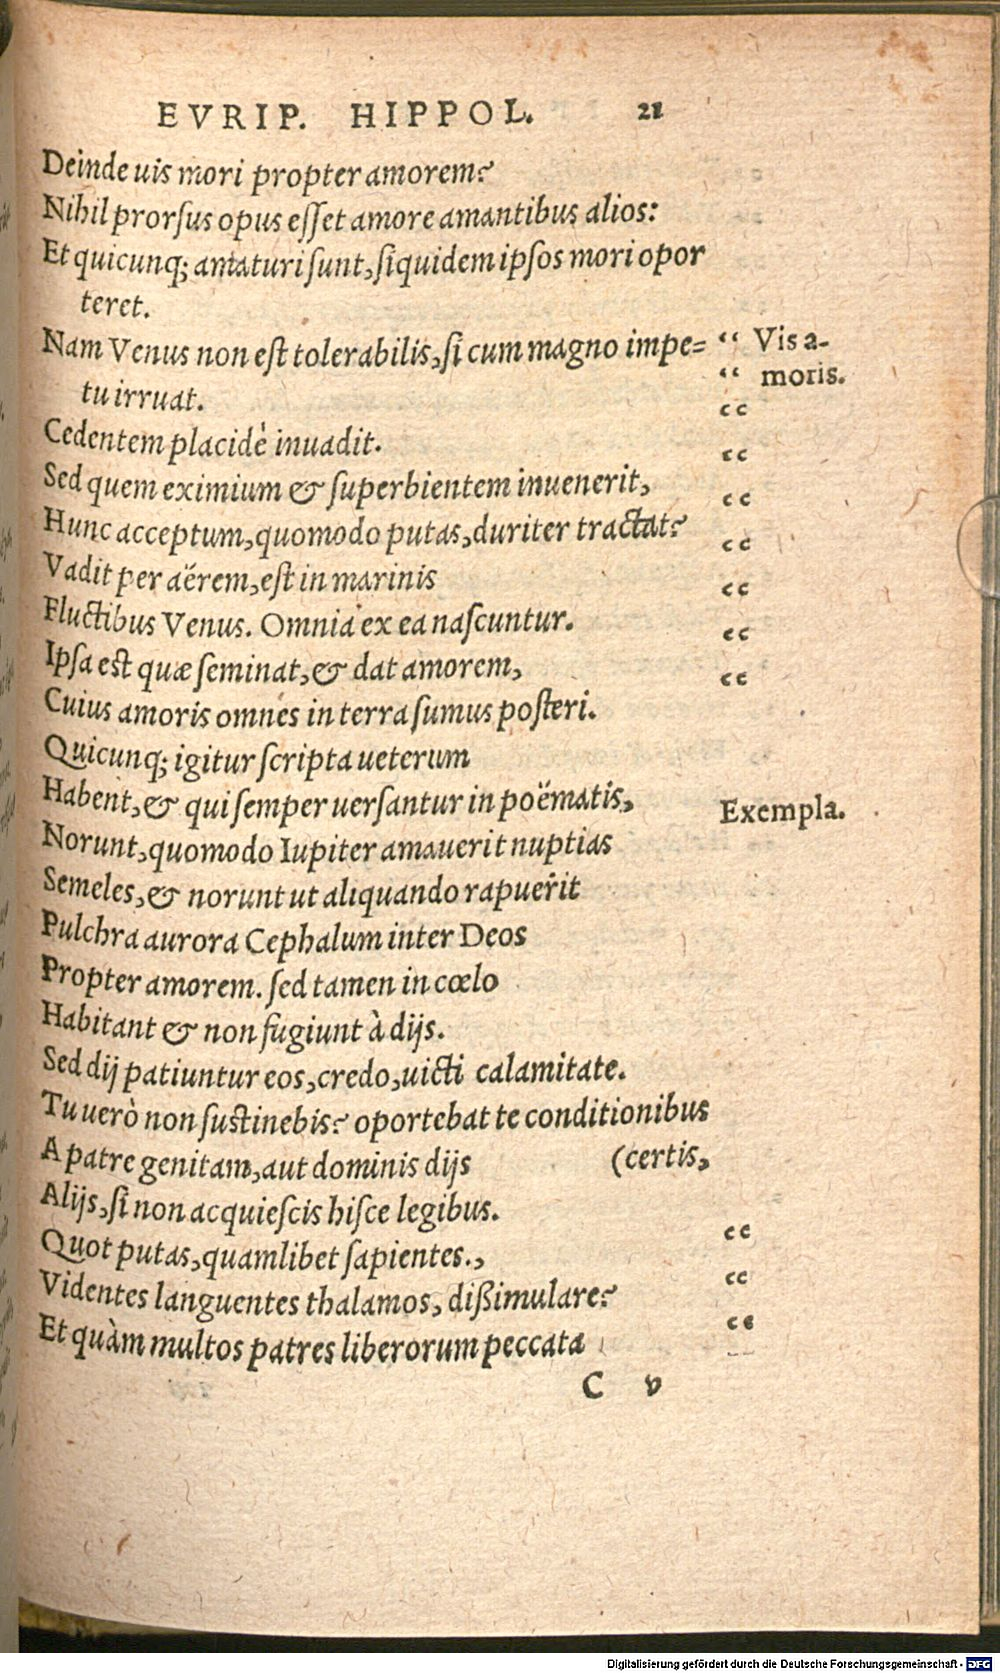 EVRIP. HIPPOL. 21
Deinde uis mori propter amorem?
Nihil prorſus opus eſſet amore amantibus alios:
Et quicunq; amaturi ſunt, ſiquidem ipſos mori opor
teret.
Nam Venus non eſt tolerabilis, ſi cum magno impe= “ Vis a-
tu irruat. “ moris.
Cedentem placidè inuadit. “
Sed quem eximium & ſuperbientem inuenerit, “
Hunc acceptum, quomodo putas, duriter tractat? “
Vadit per aërem, eſt in marinis “
Fluctibus Venus. Omnia ex ea naſcuntur. “
Ipſa est quæ ſeminat, & dat amorem, “
Cuius amoris omnes in terra ſumus poſteri. “
Quicunq; igitur ſcripta ueterum
Habent, & qui ſemper uerſantur in poëmatis, Exempla.
Norunt, quomodo Iupiter amauerit nuptias
Semeles, & norunt ut aliquando rapuerit
Pulchra aurora Cephalum inter Deos
Propter amorem. ſed tamen in cœlo
Habitant & non fugiunt à dijs.
Sed dij patiuntur eos, credo, uicti calamitate.
Tu uerò non ſustinebis? oportebat te conditionibus
A patre genitam, aut dominis dijs (certis,
Alijs, ſi non acquieſcis hiſce legibus.
Quot putas, quamlibet ſapientes., “
Videntes languentes thalamos, dißimulare? “
Et quàm multos patres liberorum peccata “
C v
Digitalisierung gefördert durch die Deutsche Forschungsgemeinschaft - DFG